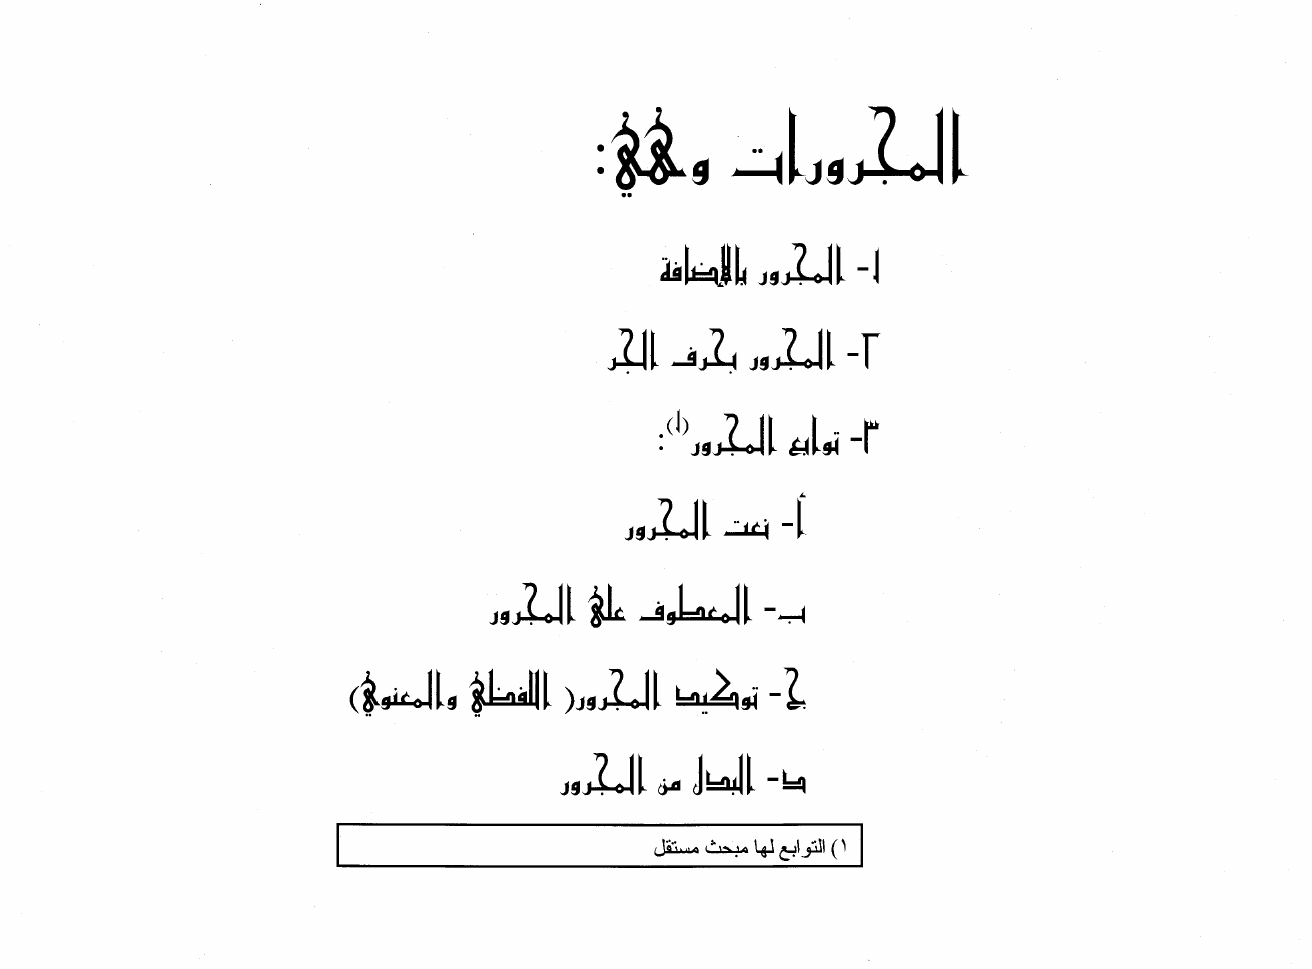 المجرورات وهي:
١- المجرور بالإضافة
٢- المجرور بحرف الجر
٣- توابع المجرور(١):
أ- نعت المجرور
ب- المعطوف على المجرور
ج- توكيد المجرور( اللفظي والمعنوي)
د- البدل من المجرور
١) التوابع لها مبحث مستقل